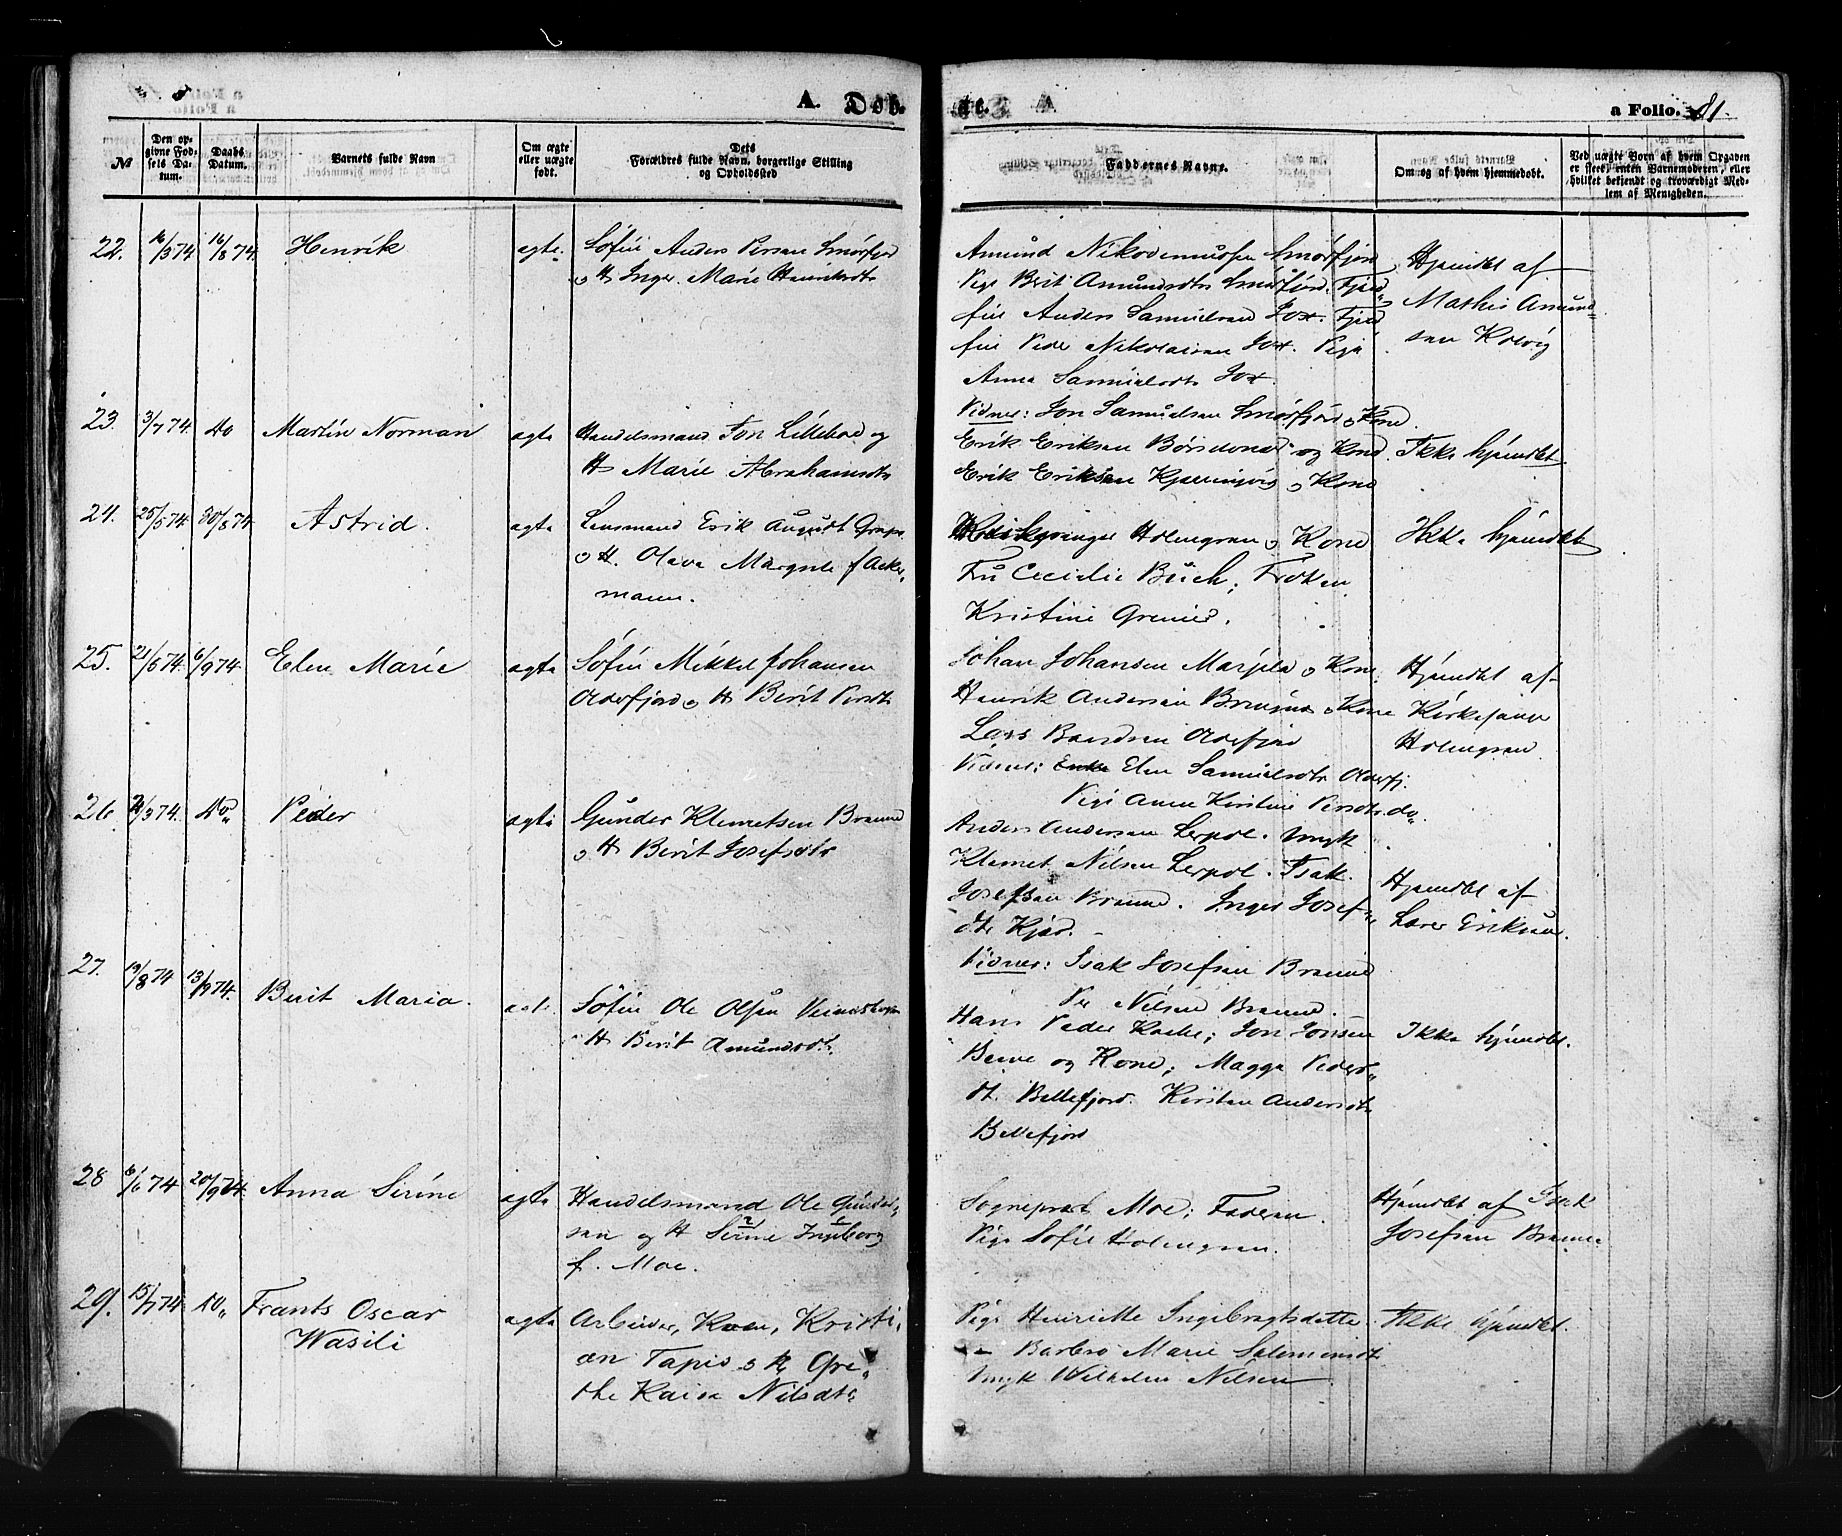 A. Døb-
te. A
a Folio. 81.
№
Den op-
givne Fød-
sels Da-
tum.
Daabs
Datum.
Barnets fulde Navn
Om ægte
eller uægte
født.
Dets
Forældres fulde Navn, borgerlige Stilling
og Opholdssted
Faddernes Navne.
Om og af hvem hjemmedøbt.
Ved uægte Børn af hvem Opgaven
er skeet, enten Barnemoderen, eller
hvilket bekjendt og troværdigt Med-
lem af Menigheden.
22. 16/3 74. 16/8 74. Henrik
ægte.
Søfin Anders Persen Smørfjord
og H Inger Marie Henriksdtr
Amund Nikodemussen Smørfjord
Pige Berit Amundsdtr Smørfjord. Fjeld-
fin Anders Samuelsen Jox. Fjeld
fin Peder Nikolaisen Jox. Pige
Anna Samuelsdtr Jox.
Vidner: Jon Samuelsen Smørfjord og Kone.
Hjemdbt af
Mathis Amund-
sen Kolvig
23. 3/7 74. do Martin Norman
ægte
Handelsmand Jon Lillebod og
H Marie Abrahamsdtr
Erik Eriksen Børselvnes og Kone.
Erik Eriksen og Kone
Ikke hjemdbt
24. 25/5 74. 30/8 74. Astrid.
ægte
Lensmand Erik August
og H. Olava Margrete f Acker-
mann.
Holmgren og Kone
Fru Cecilie Buch; Frøken
Kristine Greiner.
Ikke hjemdbt
25. 21/6 74. 6/9 74. Elen Marie
ægte
Søfin Mikkel Johansen
Olderfjord og H Berit Persdtr
Johan Johansen og Kone;
Henrik Andersen og Kone
Lars Olderfjord
Vidner: Enke Elen Samuelsdtr Olderfj.
Pige Anne Kirstine Persdtr do.
Hjemdbt af
Kirkesanger
Holmgren
26. 21/3 74. do. Peder
ægte
Gunder Klemetsen Brænne
og H Berit Josefsdtr
Anders Andersen Lerpol. Ungk
Klemet Nilsen Lerpol. Isak
Josefsen Brænne. Inger Josef-
dtr
Vidner: Isak Josefsen Brænne
Per Nilsen Brænne.
Hjemdbt af
Lars Eriksen.
27. 19/8 74 13/9 74. Berit Maria.
ægte
Søfin Ole Olsen
og H Berit Amundsdtr.
Hans Peder; Jon Jonsen
og Kone; Magga Peders-
dt. Billefjord. Kirsten Andersdtr
Billefjord
Ikke hjemdbt.
28 6/6 74 20/9 74. Anna Serine
ægte
Handelsmand Ole Gunder-
sen og H Serine Ingeborg
f. Moe.
Sogneprest Moe; Faderen.
Pige Sofie Holmgren.
Hjemdbt af Isak
Josefsen Brænne
29. 15/7 74 do. Frants Oscar
Wasili
ægte
Arbeider, Kven, Kristi-
an Tapio og H Gre-
the Kaisa Nilsdtr
Pige Henriette Ingebrigtsdatter
— Barbro Marie Salomonsdt
Ungk Wilhelm Nilsen
Ikke hjemdbt.